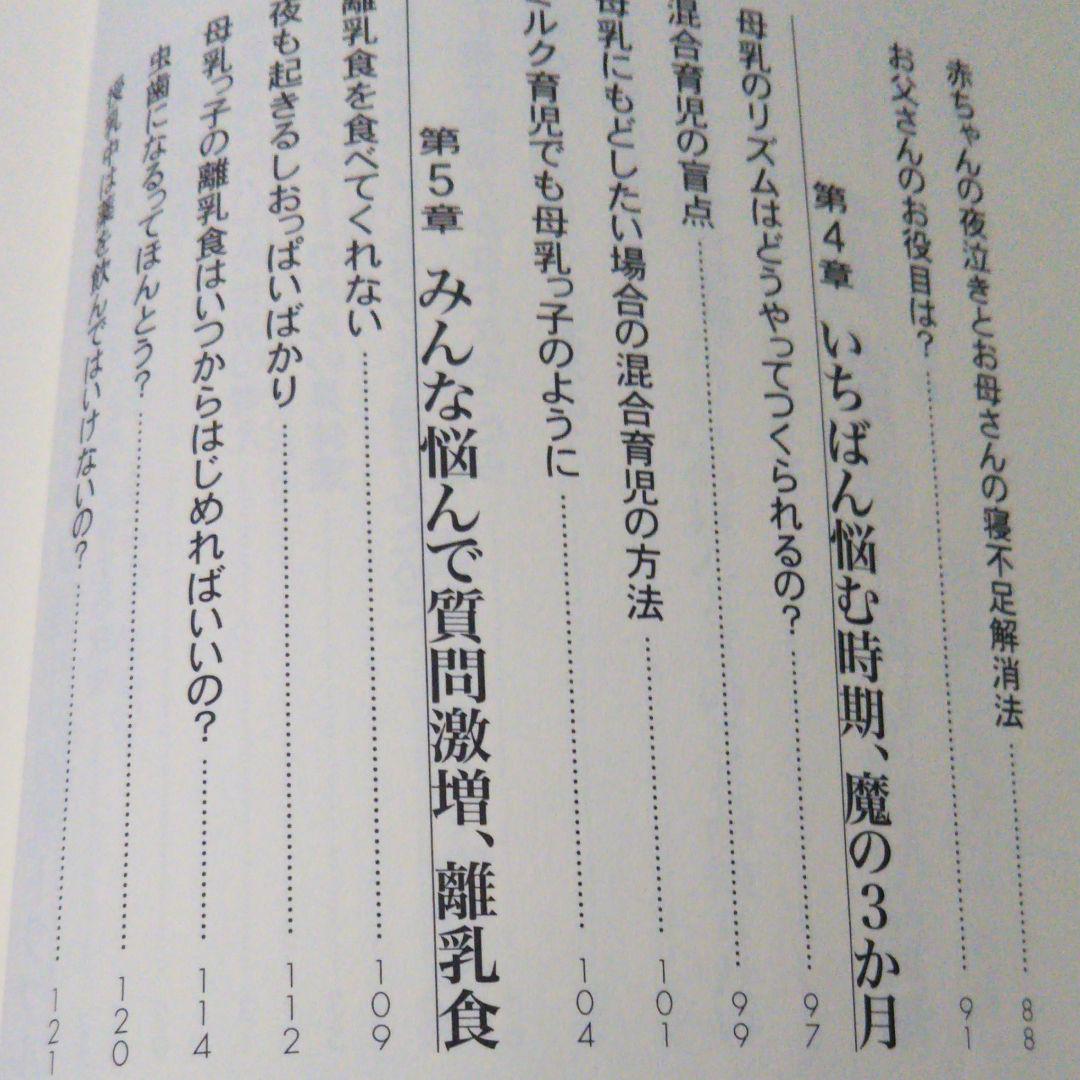 赤ちゃんの夜泣きとお母さんの寝不足解消法 88
お父さんのお役目は? 91
第4章 いちばん悩む時期、魔の3か月
母乳のリズムはどうやってつくられるの? 97
混合育児の盲点 99
母乳にもどしたい場合の混合育児の方法 101
ミルク育児でも母乳っ子のように 104
第5章 みんな悩んで質問激増、離乳食
離乳食を食べてくれない 109
夜も起きるしおっぱいばかり 112
母乳っ子の離乳食はいつからはじめればいいの? 114
虫歯になるってほんとう? 120
授乳中は薬を飲んではいけないの? 121